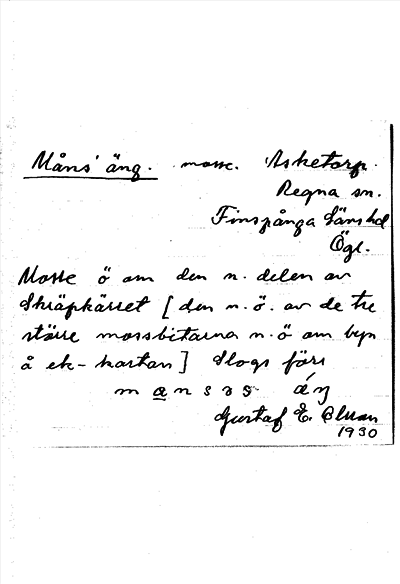 Måns' äng. mosse. Asketorp.
Regna sn.
Finspånga länshd
Ögl.
Mosse ö om den n. delen av
Skräpkärret [den n.ö. av de tre
större mossbitarna n.ö om byn
å ek-kartan] Slogs förr
Gustaf E. Bluan
1930